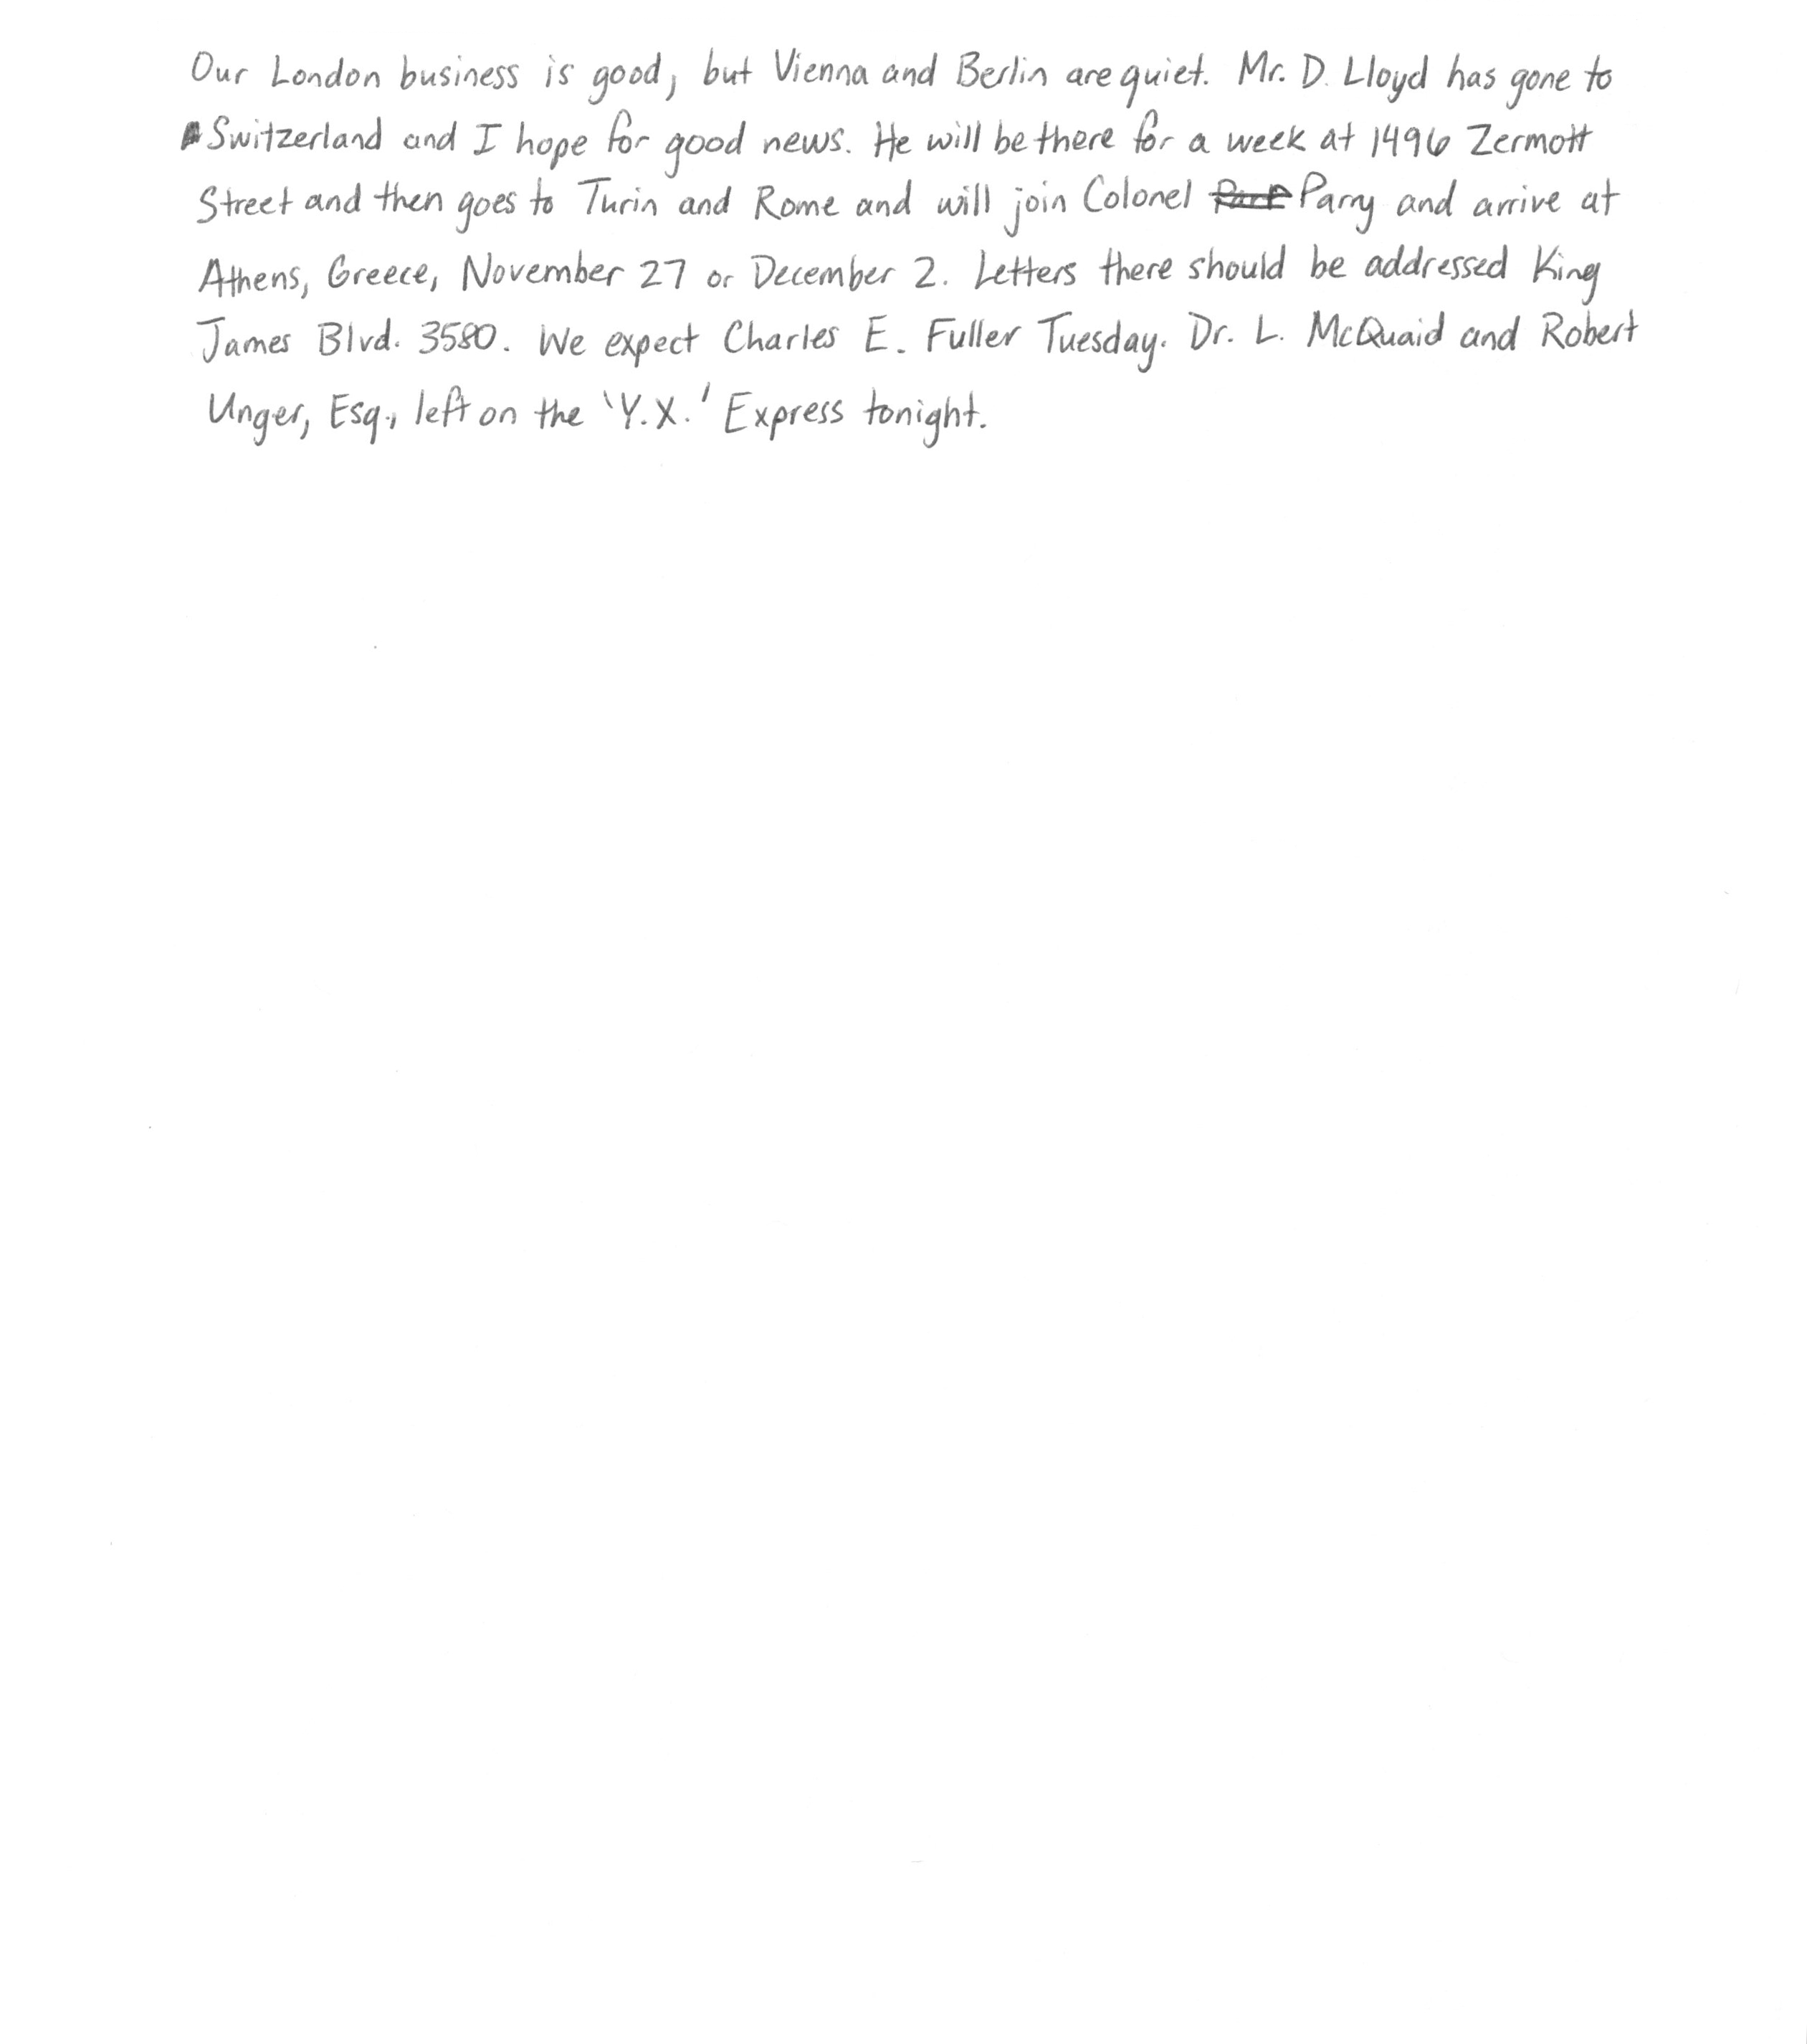 Our London business is good, but Vienna and Berlin are quiet. Mr. D. Lloyd has gone to
Switzerland and I hope for good news. He will be there for a week at 1496 Zermott
Street and then goes to Turin and Rome and will join Colonel Parry and arrive at
Athens, Greece, November 27 or December 2. Letters there should be addressed King
James Blvd. 3580. We expect Charles E. Fuller Tuesday. Dr. L. McQuaid and Robert
Unger, Esq., left on the 'Y.X.' Express tonight.